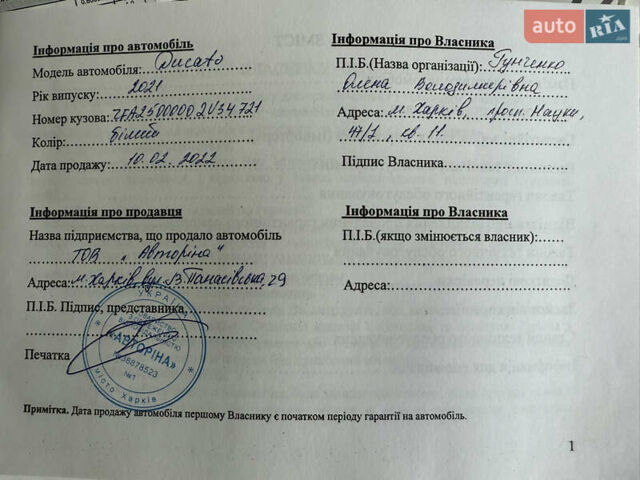 auto RIA
Інформація про автомобіль
Модель автомобіля: Ducato
Рік випуску: 2021
Номер кузова: ZFA2500000 2U34 721
Колір: Білий
Дата продажу: 10.02.2022
Інформація про Власника
П.І.Б.(Назва організації): Гунченко
Олена Володимирівна
Адреса: м. Харків, просп. Науки,
47/1, кв. 11.
Підпис Власника
Інформація про продавця
Назва підприємства, що продало автомобіль
ТОВ „Авторіна"
Адреса: м. Харків, вул. В. Панасівська, 29
П.І.Б. Підпис, представника
Печатка
УКРАЇНА
«АВТОРІНА»
38878523
№1
місто Харків
Інформація про Власника
П.І.Б.(якщо змінюється власник):
Адреса:
Примітка. Дата продажу автомобіля першому Власнику є початком періоду гарантії на автомобіль.
1